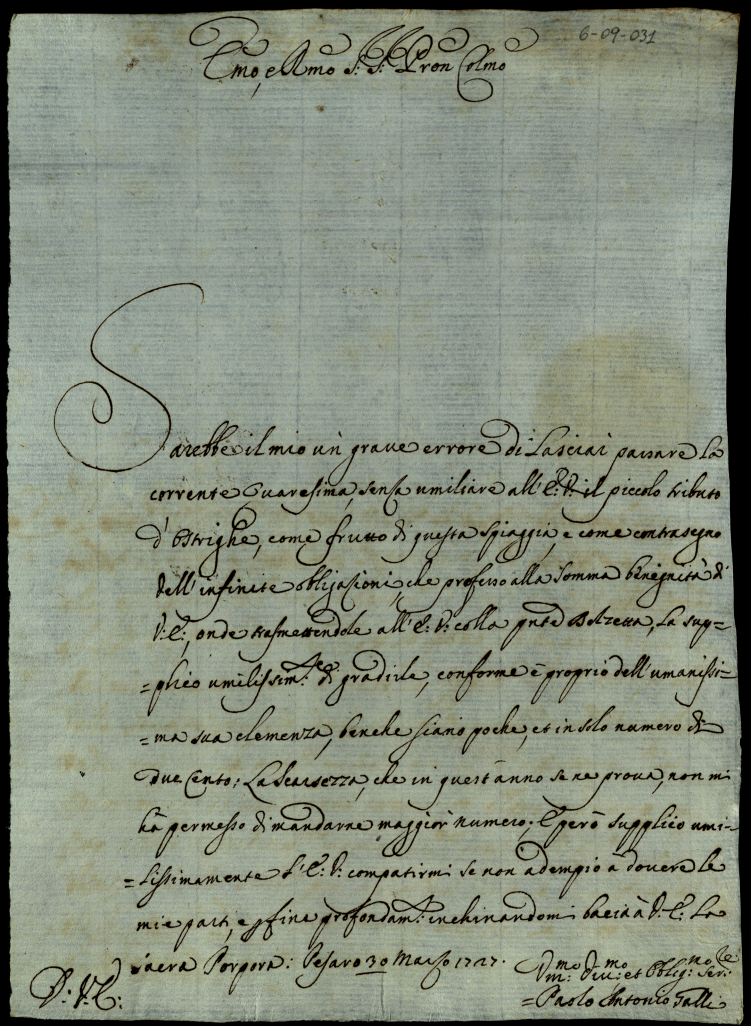 6-09-031
Emo, e Rmo S: S: Pron Colmo
Sarebbe il mio un grave errore di Lasciar passare La
corrente Quaresima, senza umiliare all'E: V: il piccolo tributo
d'Ostrighe, come frutto di questa spiaggia, e come contrasegno
dell'infinite obligazioni, che professo alla somma benignità di
V: E:, onde trasmettendole all'E: V: colla pnte Bolzetta, La sup=
=plico umilissim.te di gradirle, conforme è proprio dell'umanissi=
=ma sua clemenza, benche siano poche, et in solo numero di
due cento; La Scarsezza, che in quest'anno se ne prova, non mi
hà permesso di mandarne maggior numero; E però supplico umi=
=lissimamente l'E: V: compatirmi se non adempio à dovere le
mie parti, e p fine profondam.te inchinandomi bacio à V: E: La
sacra Porpora: Pesaro 30 Marzo 1727.
V: V: E:
Vmo Dmo et Oblig:mo Ser:re
=Paolo Antonio Galli